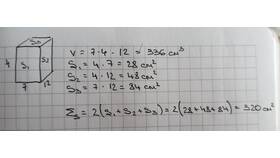 S₃
4
S₁
S₂
7
12
V = 7·4·12 = 336 cm³
S₁ = 4·7 = 28 cm²
S₂ = 4·12 = 48 cm²
S₃ = 7·12 = 84 cm²
Σs = 2(S₁+S₂+S₃) = 2(28+48+84) = 320 cm²